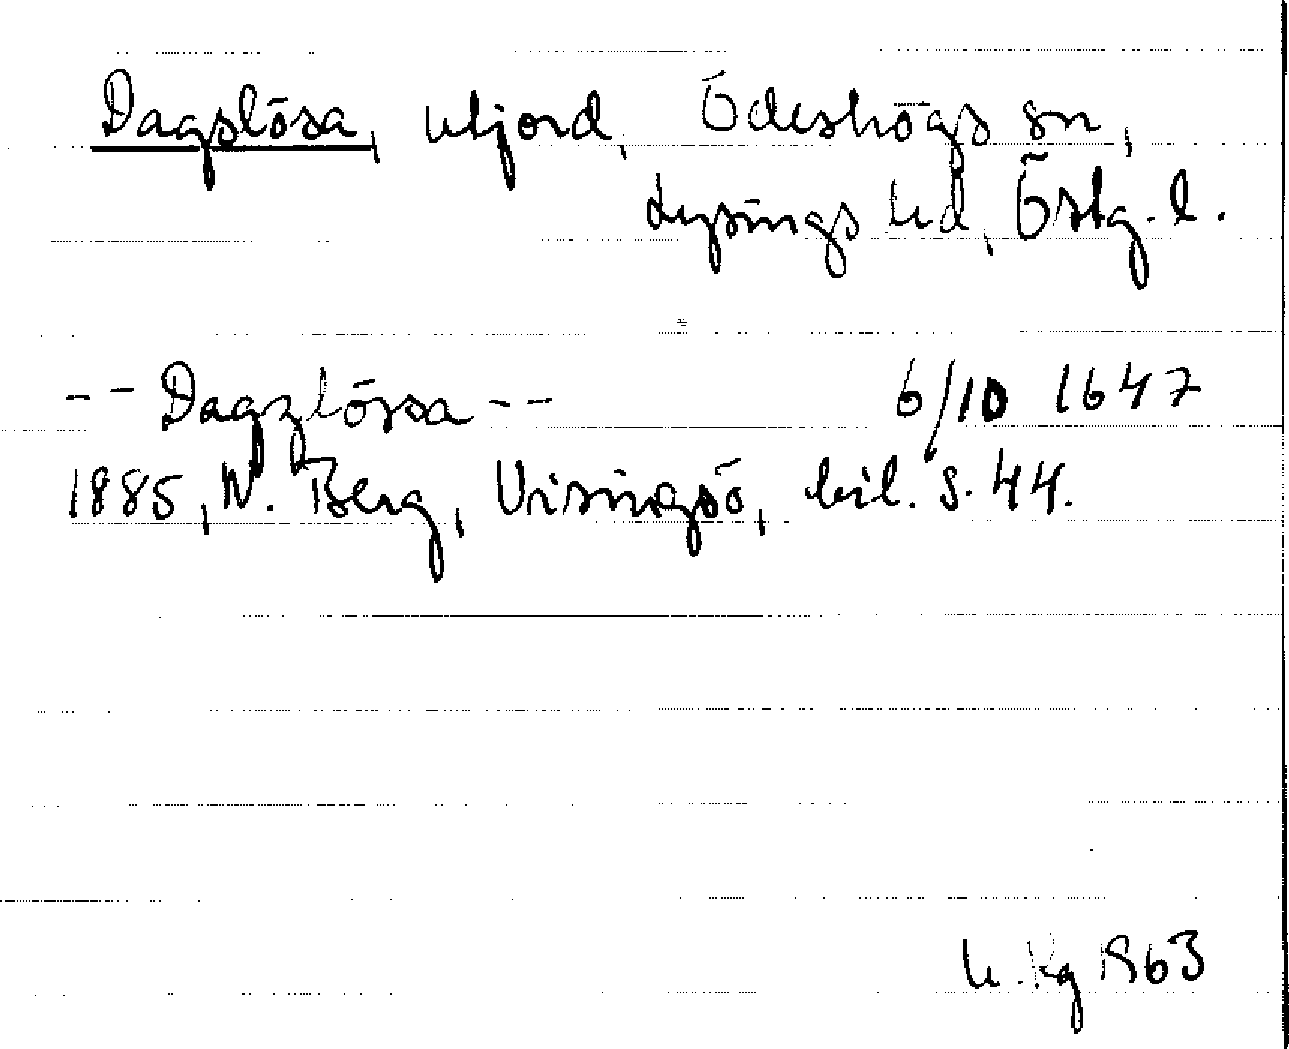 Dagslösa, utjord, Ödeshögs sn,
Lysings hd, Östg. l.
-- Dagzlössa -- 6/10 1647
1885, W. Berg, Visingsö, bil. s. 44.
U. Kg 1963